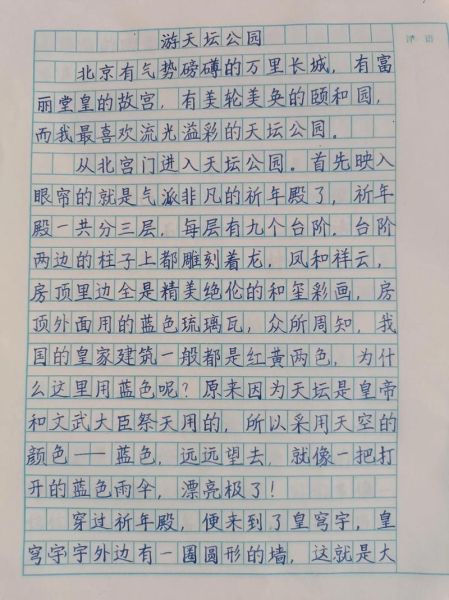 游天坛公园
北京有气势磅礴的万里长城，有富
丽堂皇的故宫，有美轮美奂的颐和园，
而我最喜欢流光溢彩的天坛公园。
从北宫门进入天坛公园。首先映入
眼帘的就是气派非凡的祈年殿了，祈年
殿一共分三层，每层有九个台阶，台阶
两边的柱子上都雕刻着龙，凤和祥云，
房顶里边全是精美绝伦的和玺彩画，房
顶外面用的蓝色琉璃瓦，众所周知，我
国的皇家建筑一般都是红黄两色，为什
么这里用蓝色呢？原来因为天坛是皇帝
和文武大臣祭天用的，所以采用天空的
颜色——蓝色，远远望去，就像一把打
开的蓝色雨伞，漂亮极了！
穿过祈年殿，便来到了皇穹宇，皇
穹宇宇外边有一圈圆形的墙，这就是大
评 语